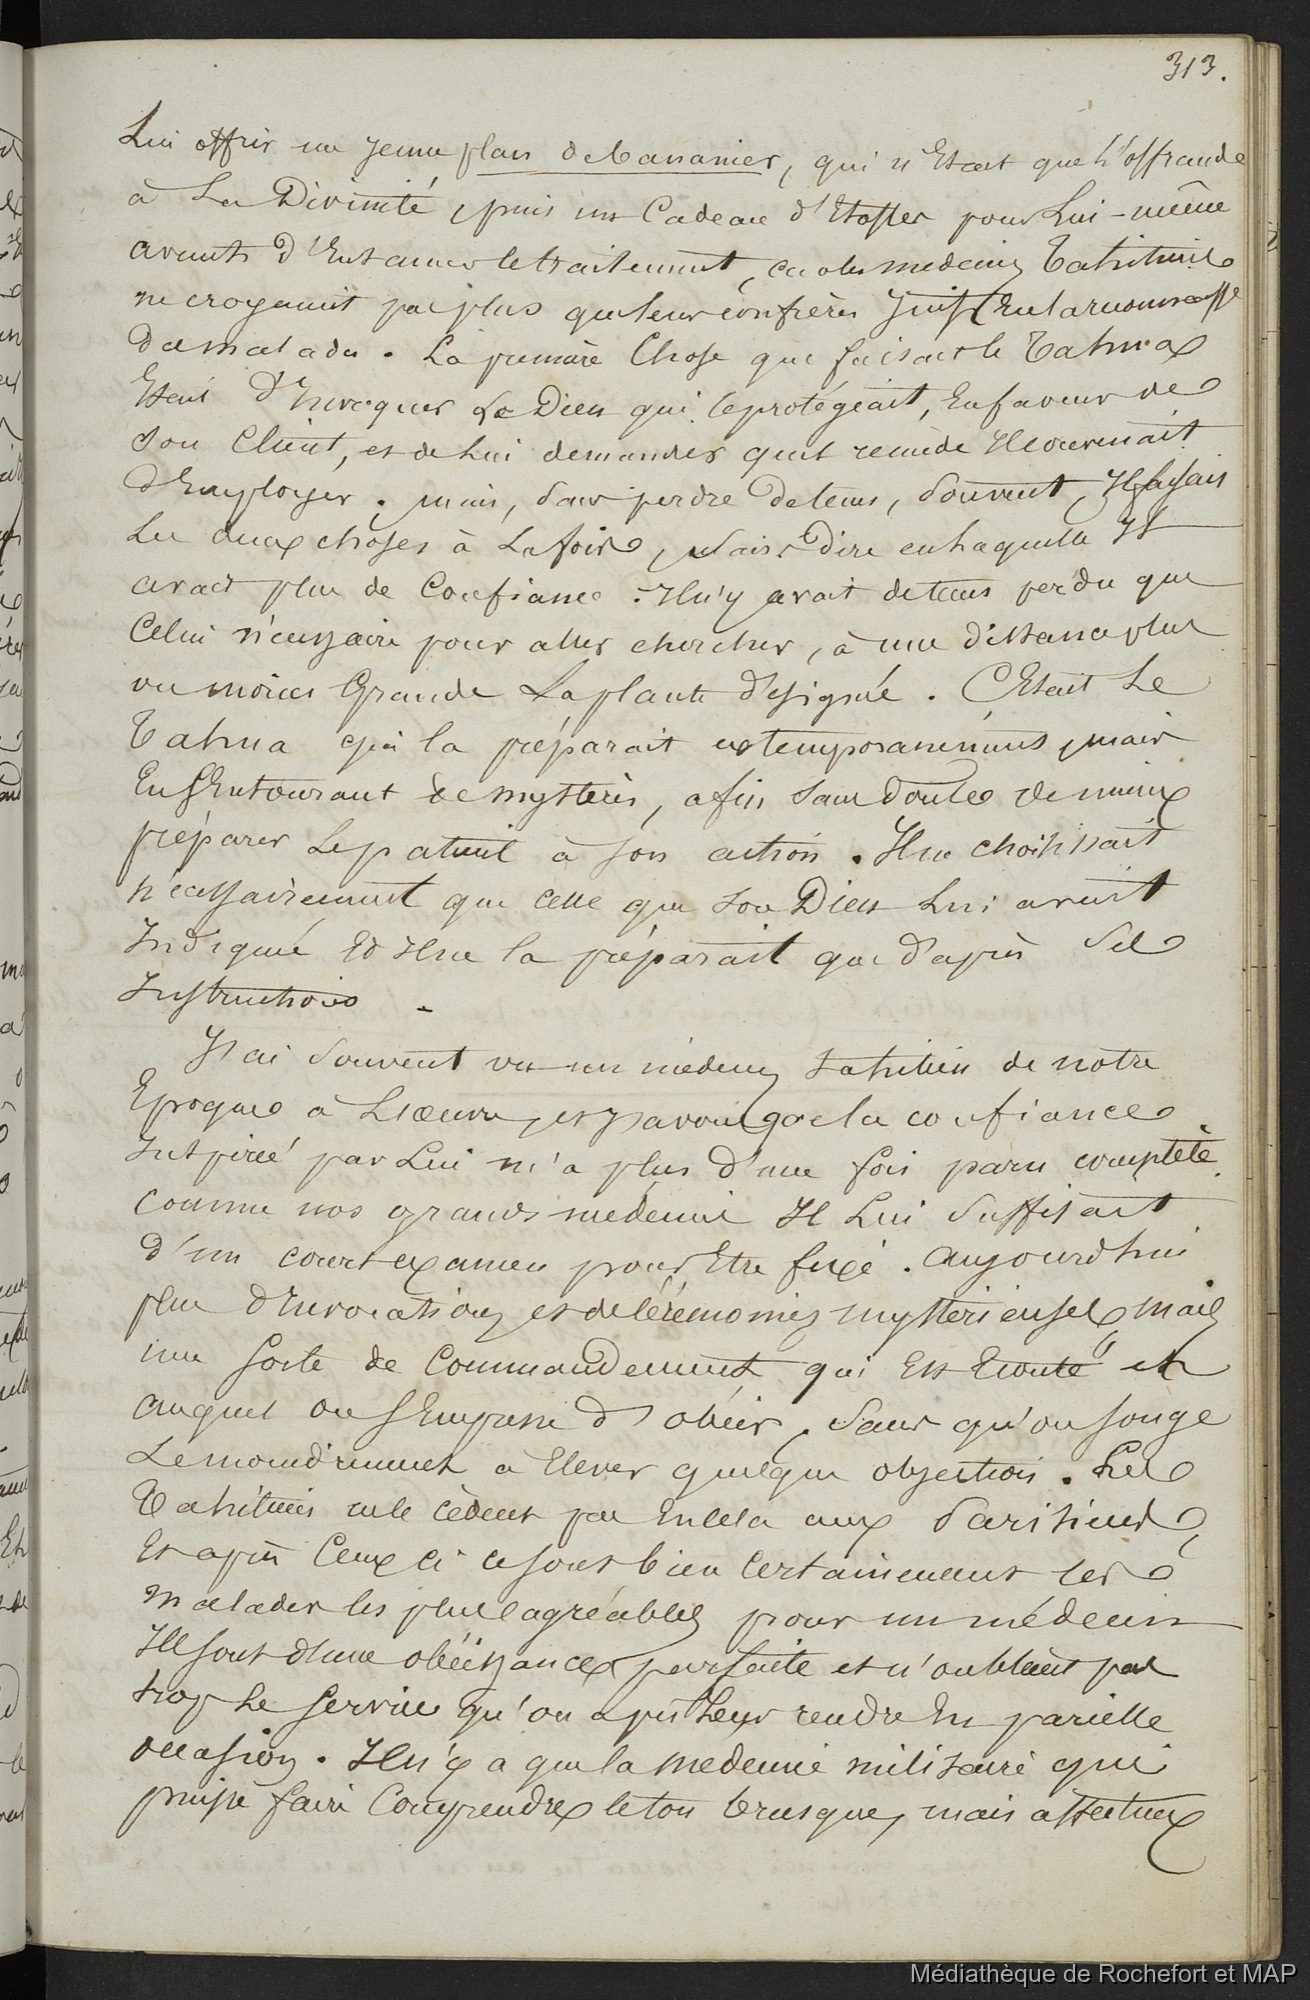 313.
Lui offrir un jeune plan de bananier, qui n'était que l'offrande
à La Divinité, puis un Cadeau d'Etoffes pour Lui-même
avant d'Entamer le traitement, car les medecins Tahitiens
ne croyaient pas plus que leurs confrères
de malades. La première Chose que faisait le Tahua
Etait d'Invoquer Le Dieu qui le protégeait, En faveur de
Son Client, et de Lui demander quel remède Il convenait
d'Employer. mais, Sans perdre de tems, Souvent, Il faisait
Les deux choses à La fois, Sans dire en laquelle Il
avait plus de Confiance. Il n'y avait de tems perdu que
Celui nécessaire pour aller chercher, à une distance plus
ou moins Grande La plante désignée. C'Etait Le
Tahua qui la préparait extemporanément, mais
En S'Entourant de mystères, afin Sans doute de mieux
préparer Le patient à son action. Il ne choisissait
nécessairement que celle que son Dieu Lui avait
Indiquée Et Il ne la préparait que d'après Ses
Instructions.
J'ai Souvent vu un médecin tahitien de notre
Epoque à L'œuvre, et j'avoue que la confiance
Inspirée par Lui m'a plus d'une fois paru complète.
comme nos grands medecins Il Lui Suffisait
d'un court examen pour Etre fixé. Aujourd'hui
plus d'Invocations et de Cérémonies mystérieuses, mais
une Sorte de Commandement qui Est Ecouté et
auquel on S'Empresse d'obéir, Sans qu'on songe
Le moindrement à Elever quelque objection. Les
Tahitiens ne le cèdent pas En cela aux Parisiens,
Et après Ceux ci ce sont bien Certainement les
malades les plus agréables pour un médecin
Ils sont d'une obéissance parfaite et n'oublient pas
trop Le Service qu'on a pu Leur rendre En pareille
occasion. Il n'y a que la medecine militaire qui
puisse faire Comprendre le ton brusque, mais affectueux
Médiathèque de Rochefort et MAP